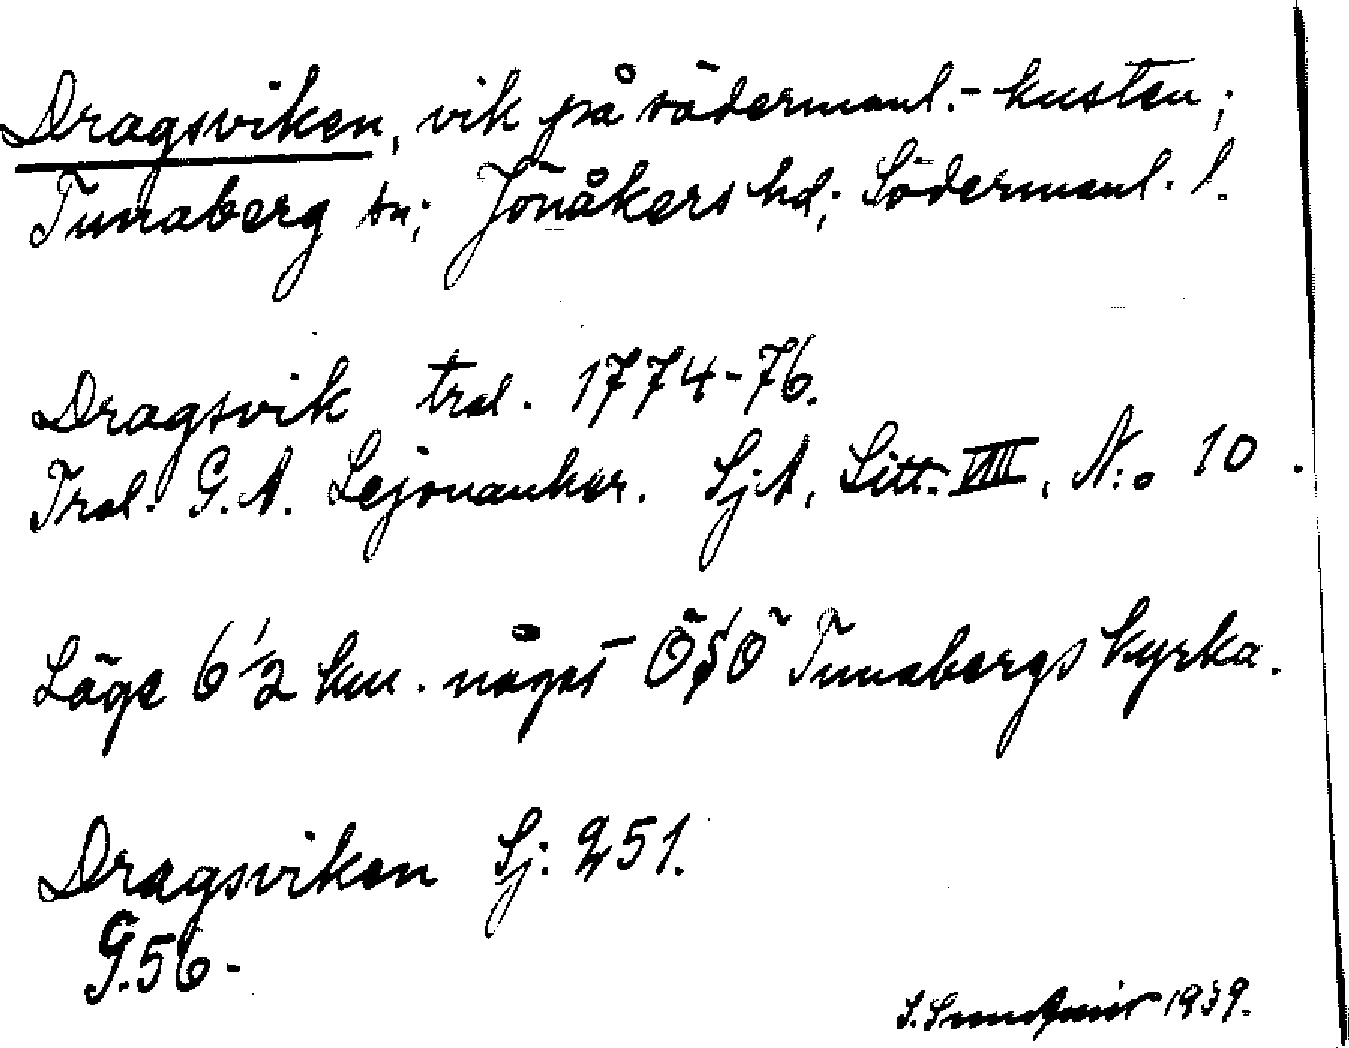 Dragsviken, vik på södermanl.-kusten;
Tunaberg sn; Jönåkers hd; Södermanl. l.
Dragsvik trol. 1774-76.
Trol. G.A. Lejonanker. SjA, Litt. VIII, N:o 10.
Läge 6 1/2 km. något ÖSÖ Tunabergs kyrka.
Dragsviken Sj. 251.
G.56-
S. Sundqvist 1939.